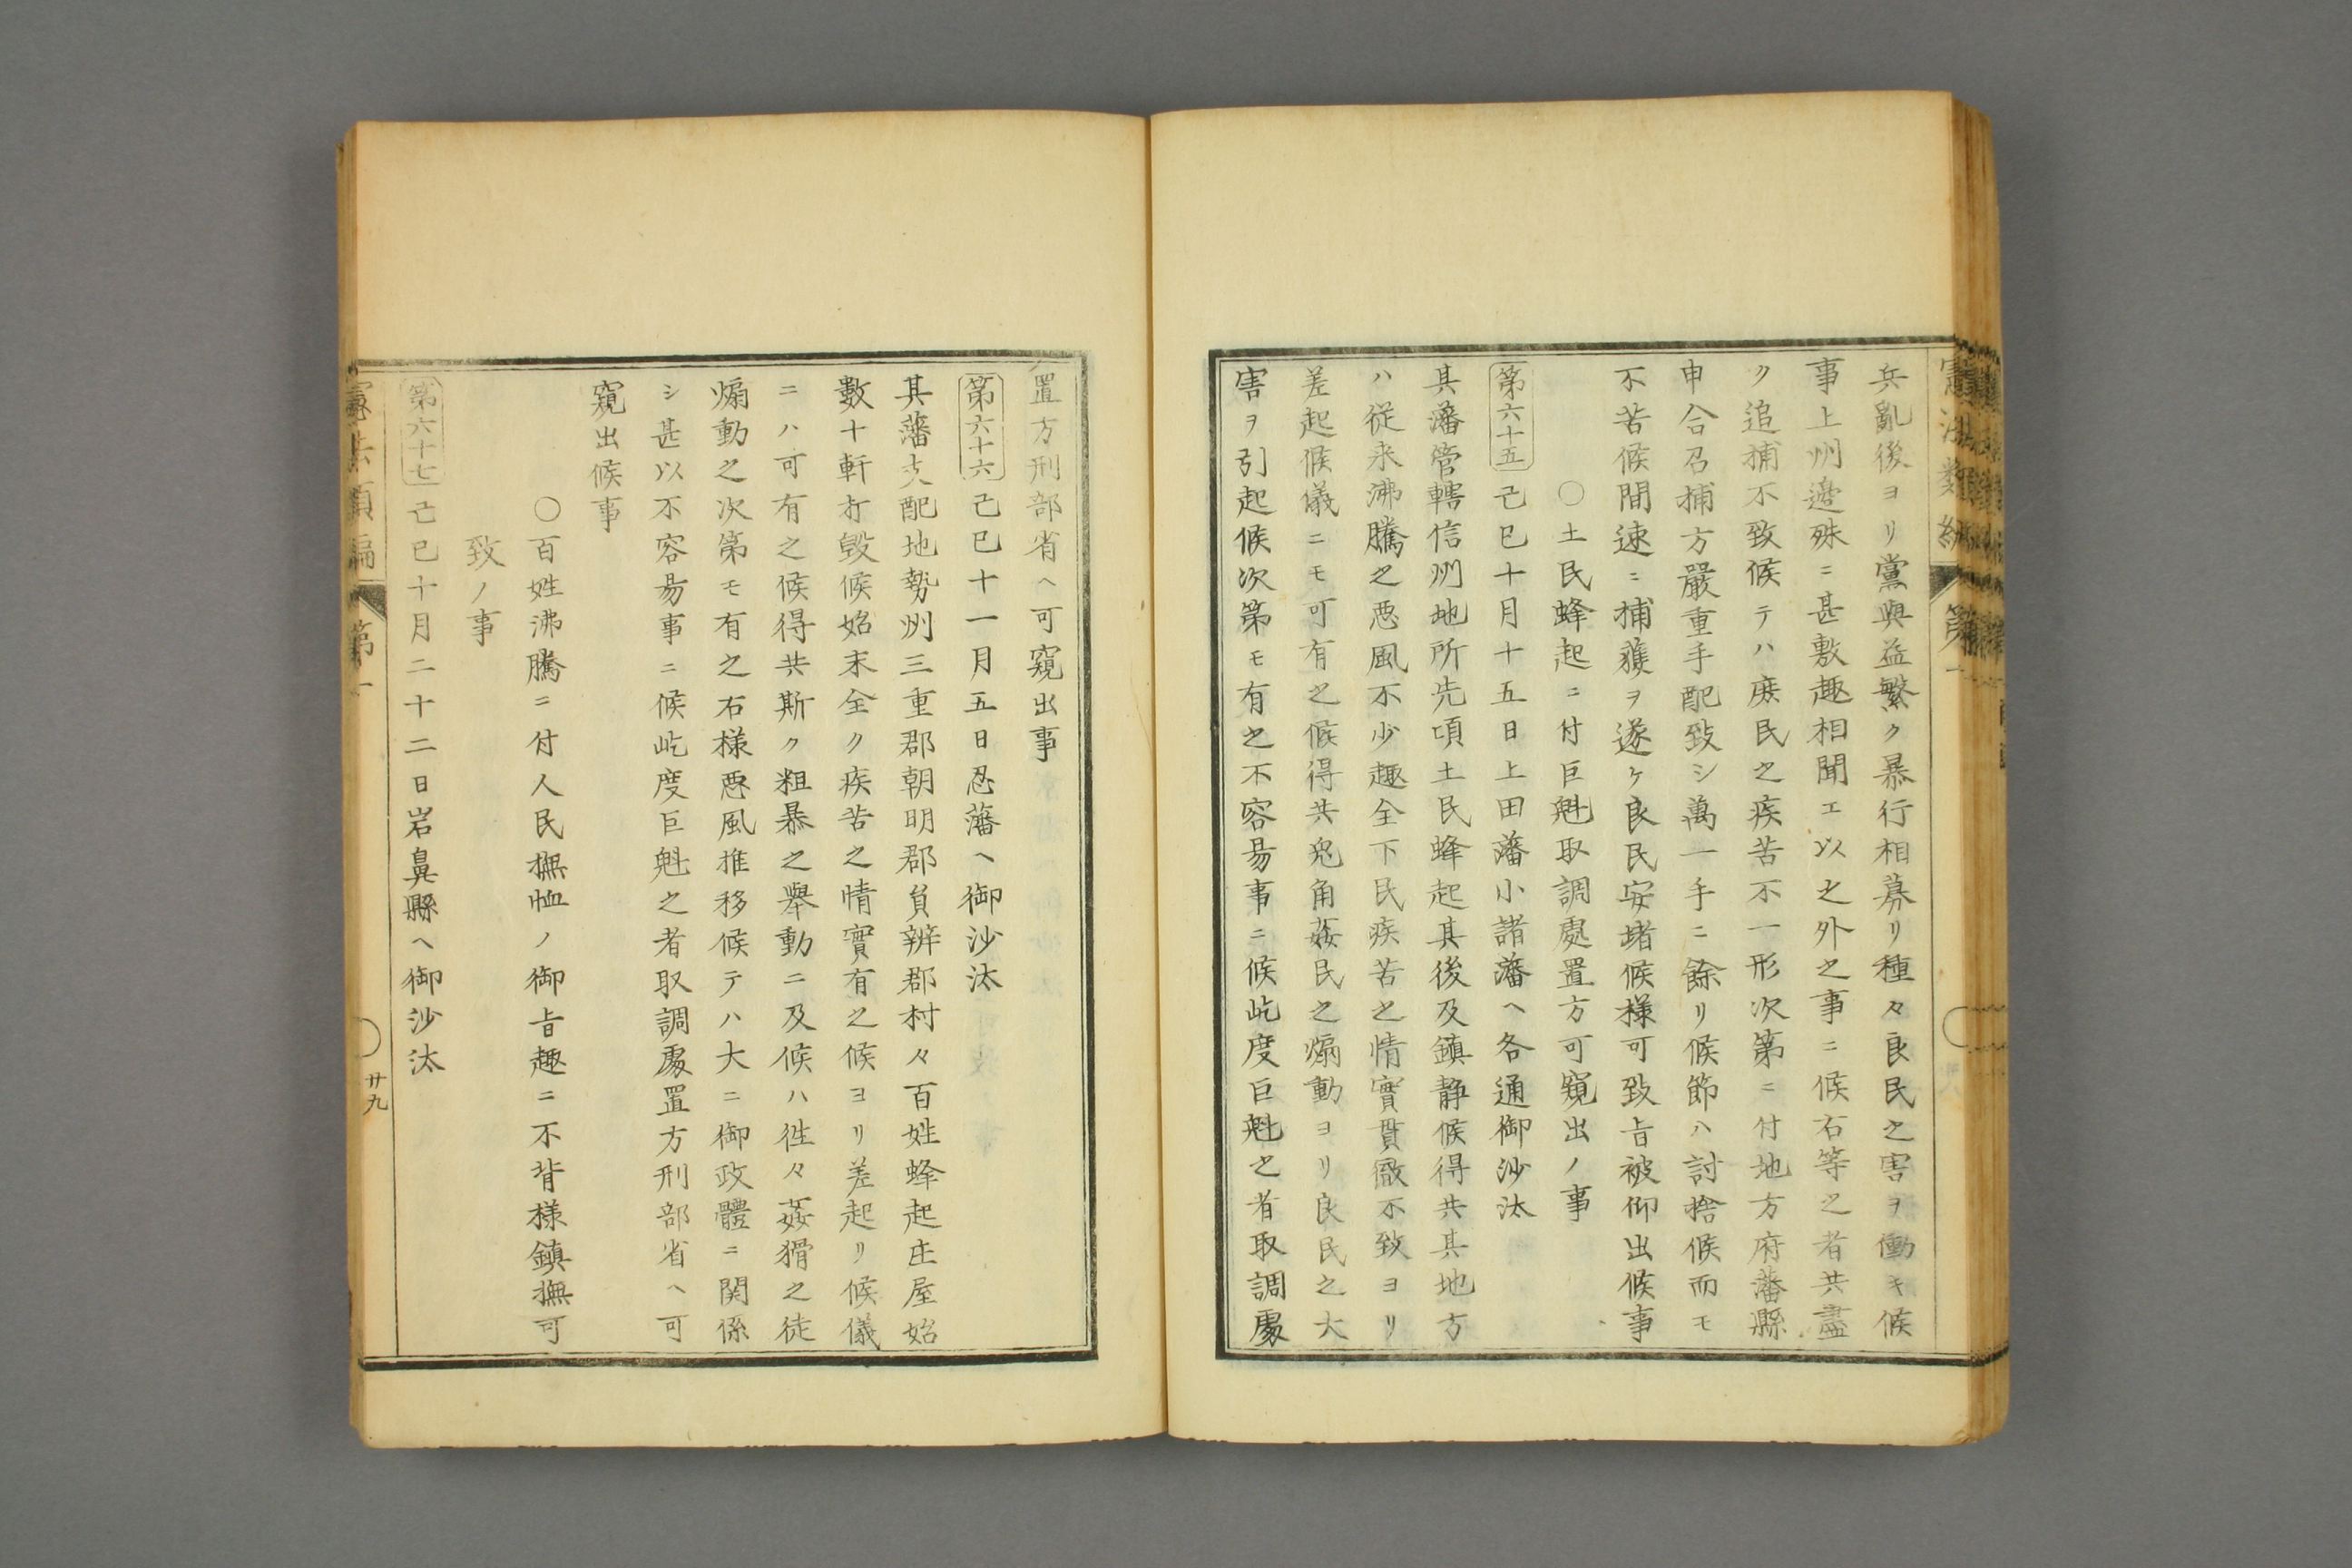 兵亂後ヨリ黨與益繁ク暴行相募リ種々良民之害ヲ働キ候
事上州邉殊ニ甚敷趣相聞エ以之外之事ニ候右等之者共盡
ク追捕不致候テハ庶民之疾苦不一形次第ニ付地方府藩縣
申合召捕方嚴重手配致シ萬一手ニ餘リ候節ハ討捨候而モ
不苦候間速ニ捕獲ヲ遂ケ良民安堵候様可致旨被仰出候事
○土民蜂起ニ付巨魁取調處置方可窺出ノ事
第六十五己巳十月十五日上田藩小諸藩ヘ各通御沙汰
其藩管轄信州地所先頃土民蜂起其後及鎮静候得共其地方
ハ従来沸騰之悪風不少趣全下民疾苦之情實貫徹不致ヨリ
差起候儀ニモ可有之候得共兎角姦民之煽動ヨリ良民之大
害ヲ引起候次第モ有之不容易事ニ候屹度巨魁之者取調處
置方刑部省ヘ可窺出事
第六十六己巳十一月五日忍藩ヘ御沙汰
其藩支配地勢州三重郡朝明郡員辨郡村々百姓蜂起庄屋始
數十軒打毀候始末全ク疾苦之情實有之候ヨリ差起リ候儀
ニハ可有之候得共斯ク粗暴之舉動ニ及候ハ徃々姦猾之徒
煽動之次第モ有之右様悪風推移候テハ大ニ御政體ニ関係
シ甚以不容易事ニ候屹度巨魁之者取調處置方刑部省ヘ可
窺出候事
○百姓沸騰ニ付人民撫恤ノ御旨趣ニ不背様鎮撫可
致ノ事
第六十七己巳十月二十二日岩鼻縣ヘ御沙汰
憲法類編 第一
廿九